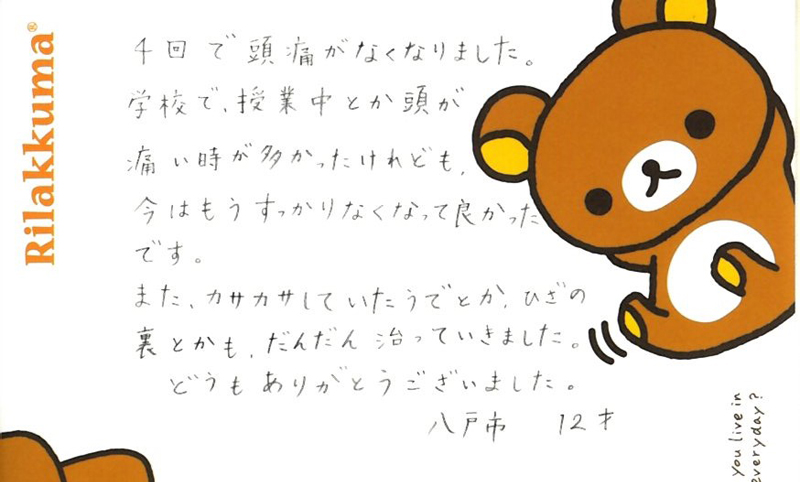 Rilakkuma®
4回で頭痛がなくなりました。
学校で、授業中とか頭が
痛い時が多かったけれども、
今はもうすっかりなくなって良かった
です。
また、カサカサしていたうでとか、ひざの
裏とかも、だんだん治っていきました。
どうもありがとうございました。
八戸市 12才
you live in
everyday?